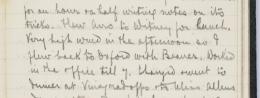 for an hours or half writing notes on its
tricks. Flew Avro to Witney for lunch.
Very high wind in the afternoon so I
flew back to Oxford with Beaver. Worked
in the office till 7. Changed & went to
dinner at Vineyard & Miss Allens